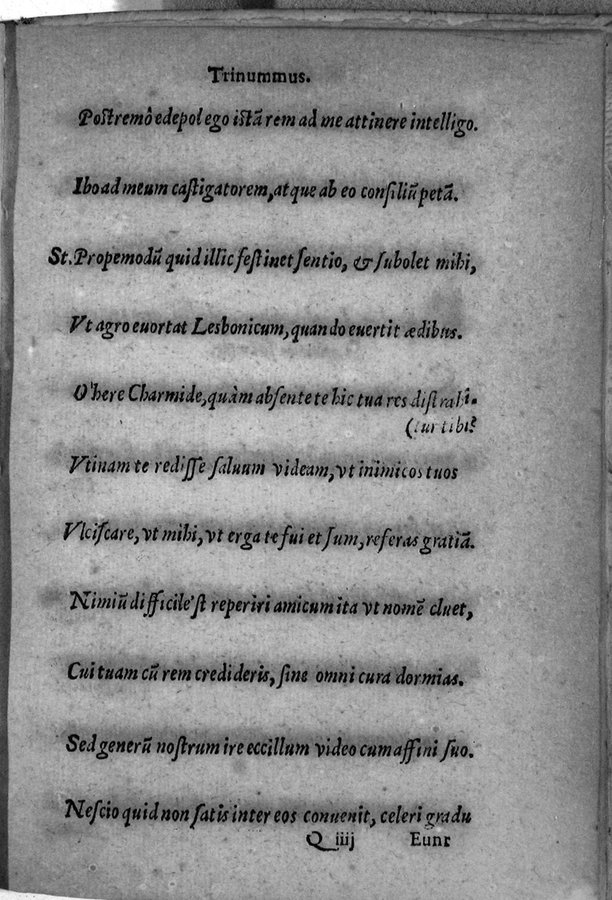 Trinummus.
Postremô edepol ego istã rem ad me attinere intelligo.
Ibo ad meum castigatorem, atque ab eo consiliũ petã.
St. Propemodũ quid illic festinet sentio, & subolet mihi,
Vt agro euortat Lesbonicum, quando euertit ædibus.
O' here Charmide, quàm absente te hic tua res distrahi-
(tur tibi?
Vtinam te redisse saluum videam, vt inimicos tuos
Vlciscare, vt mihi, vt erga te fui et sum, referas gratiã.
Nimiũ difficile'st reperiri amicum ita vt nomẽ cluet,
Cui tuam cũ rem credideris, sine omni cura dormias.
Sed generũ nostrum ire eccillum video cum affini suo.
Nescio quid non satis inter eos conuenit, celeri gradu
Q iiij Eunt